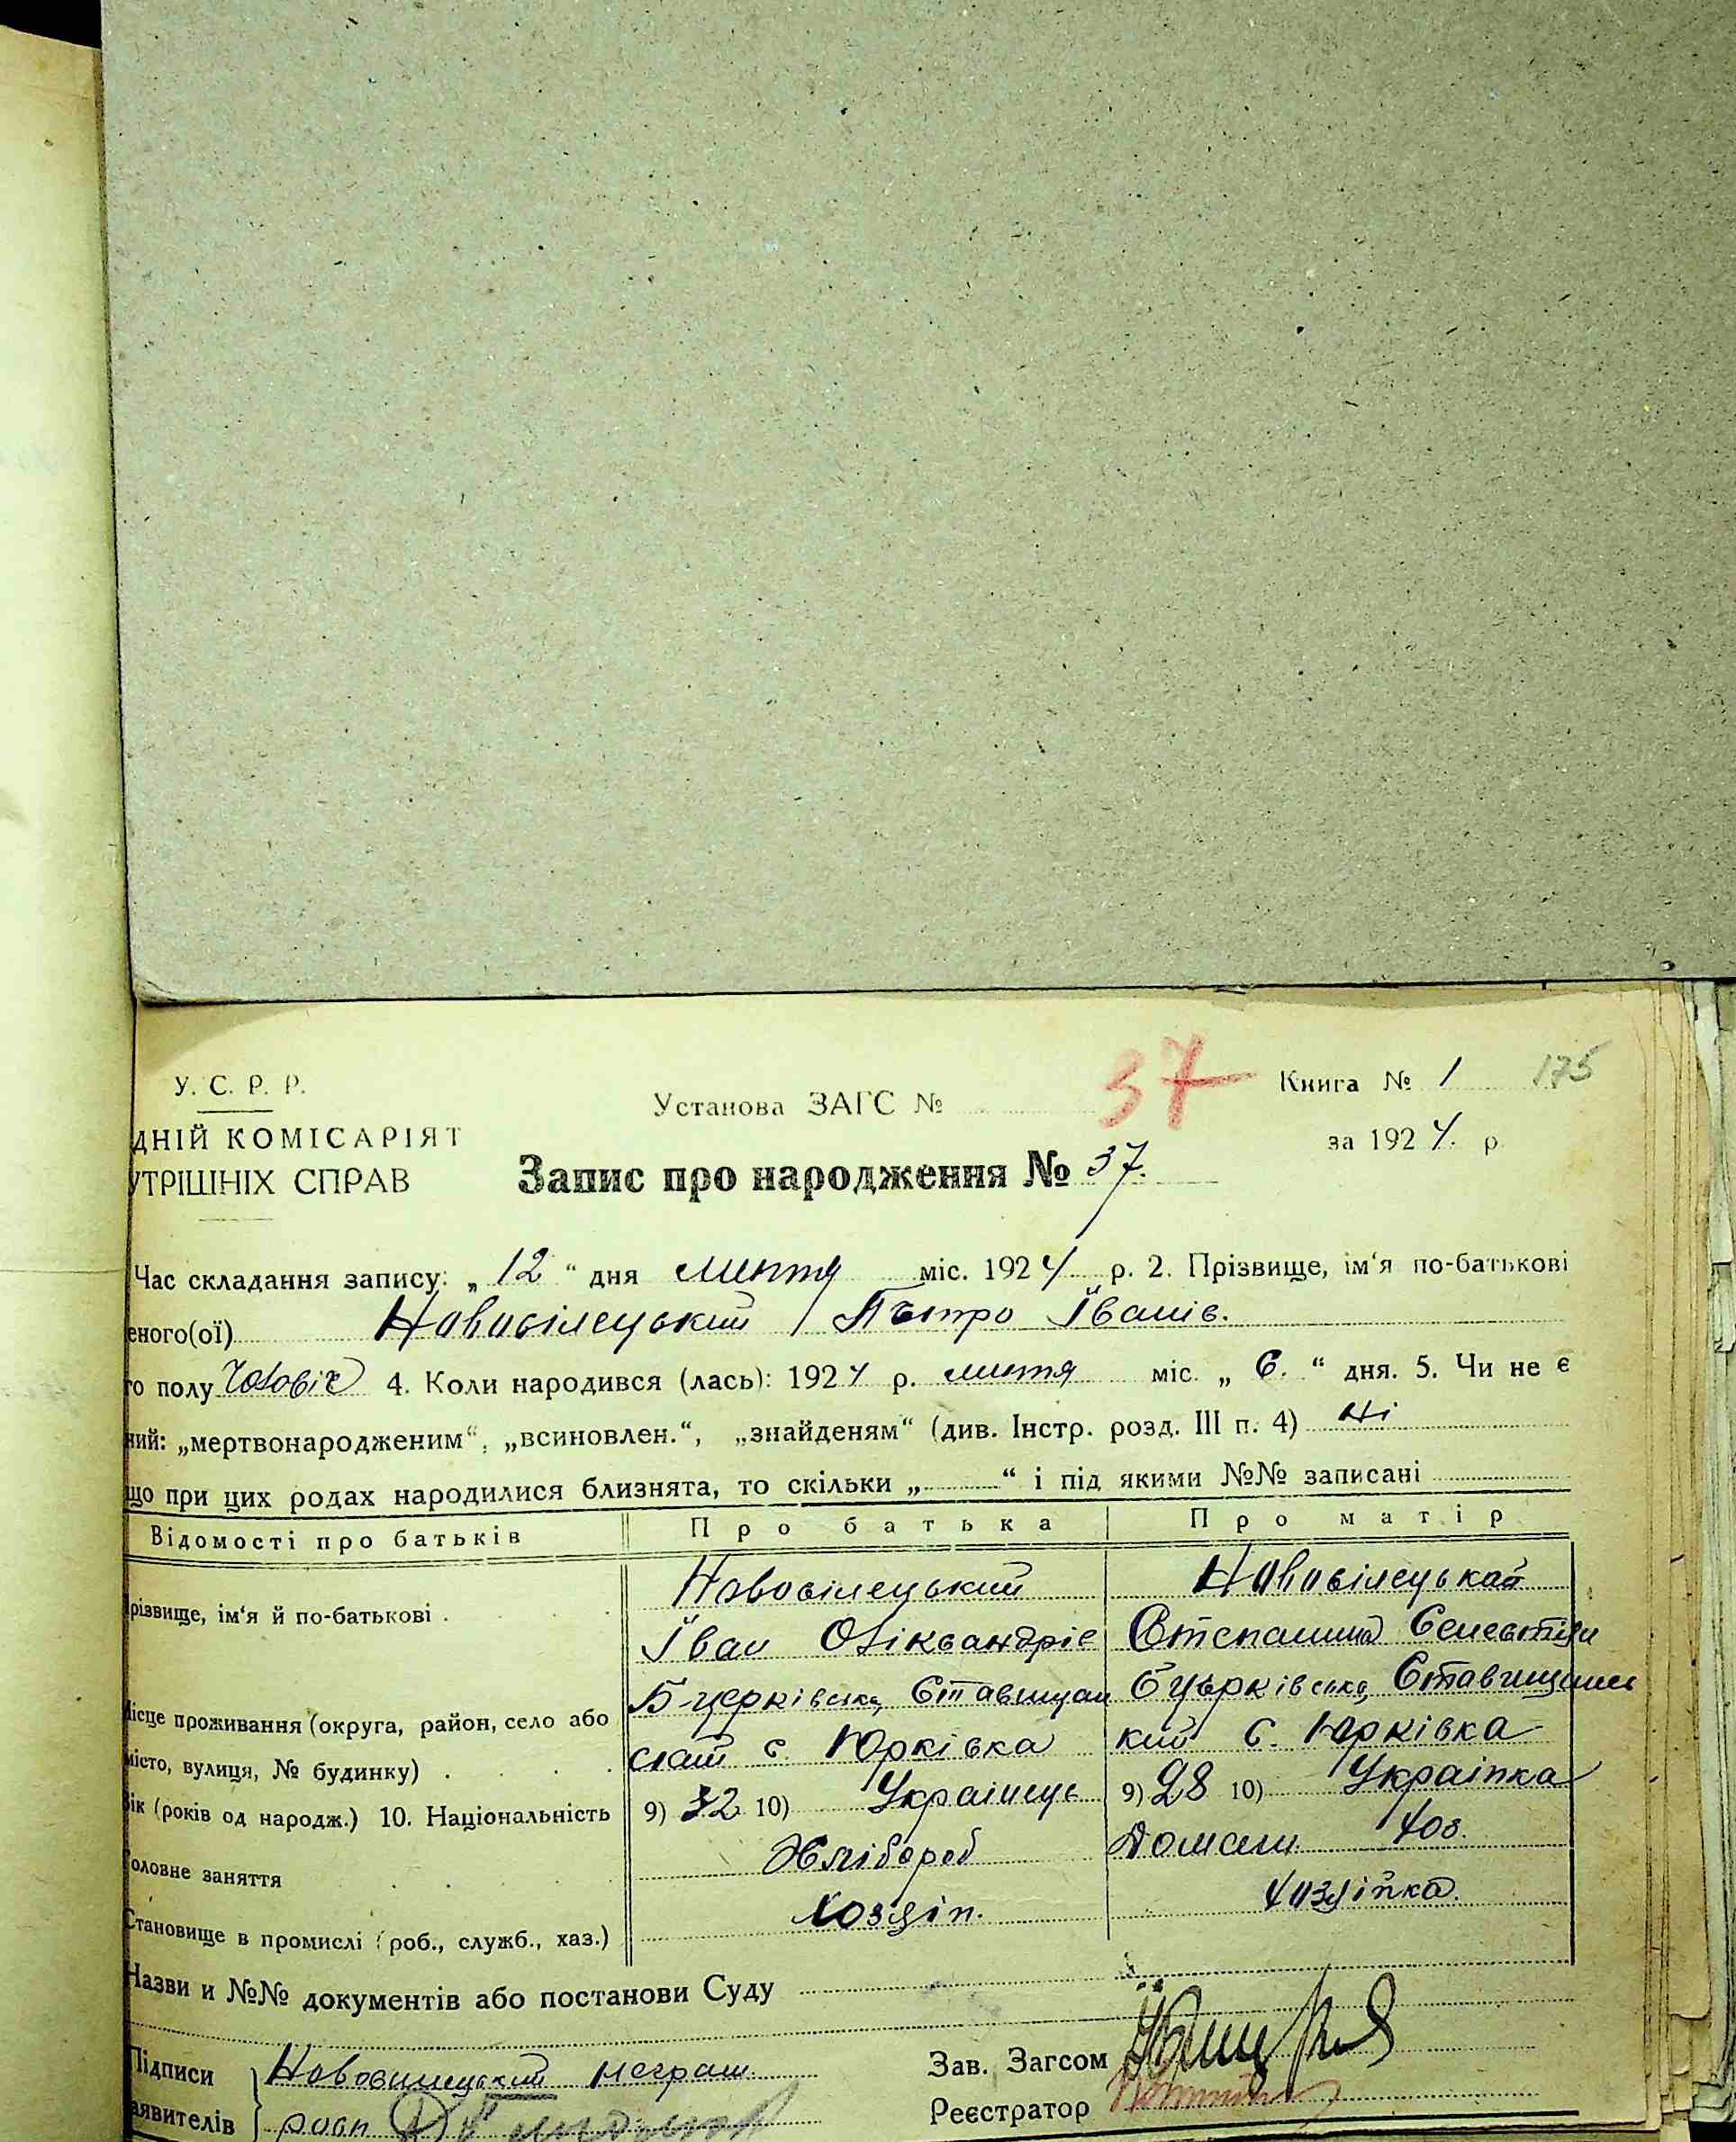 У. С. Р. Р.
Установа ЗАГС №
37
Книга № 1
175
ДНІЙ КОМІСАРІЯТ
за 1924. р.
УТРІШНІХ СПРАВ
Запис про народження № 37.
Час складання запису: „ 12 “ дня лютя міс. 1924 р. 2. Прізвище, ім‘я по-батькові
еного(ої) Новосілецький Пътро Іванів.
го полу Чоловіч 4. Коли народився (лась): 1924 р. лютя міс. „ 6. “ дня. 5. Чи не є
ний: „мертвонародженим“, „всиновлен.“, „знайденям“ (див. Інстр. розд. III п. 4) Ні
що при цих родах народилися близнята, то скільки „ “ і під якими №№ записані
Відомості про батьків Про батька Про матір
різвище, ім‘я й по-батькові . Новосілецький Новосілецькая
Іван Оліксандрів Степанида
Місце проживання (округа, район, село або Б-церківська, Ставищан Бцерківська, Ставищанс
місто, вулиця, № будинку) ский с. Юрківка кий с. Юрківка
Вік (років од народж.) 10. Національність 9) 32 10) Украінець 9) 28 10) Украінка
Головне заняття Хлібороб Домаш. хоз.
Становище в промислі (роб., служб., хаз.) Хозяін. хозяінка.
Назви и №№ документів або постанови Суду
Підписи Новосилецький неграм.
Зав. Загсом
аявителів
Реєстратор